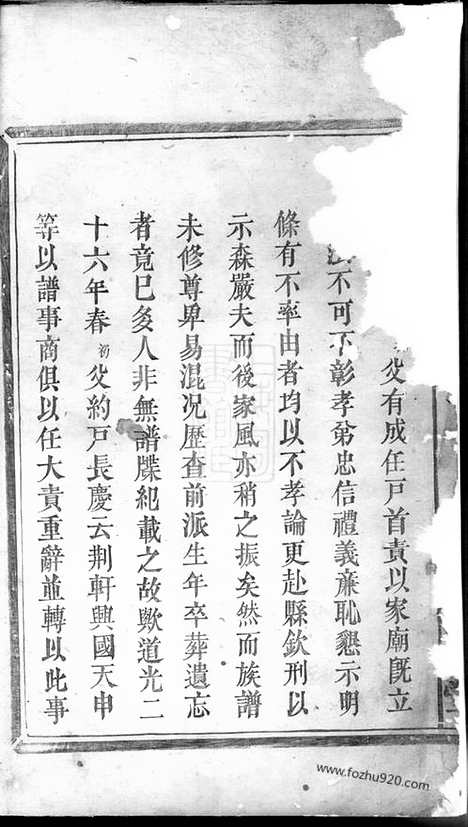 父有成任戸首責以家廟旣立
不可不彰孝弟忠信禮義亷恥懇示明
條有不率由者均以不孝論更赴縣欽刑以
示森嚴夫而後家風亦稍之振矣然而族譜
未修尊卑易混况歷查前派生年卒葬遺忘
者竟已多人非無譜牒紀載之故歟道光二
十六年春初父約戸長慶云荆軒興國天申
等以譜事商俱以任大責重辭並轉以此事
www.fozhu920.com